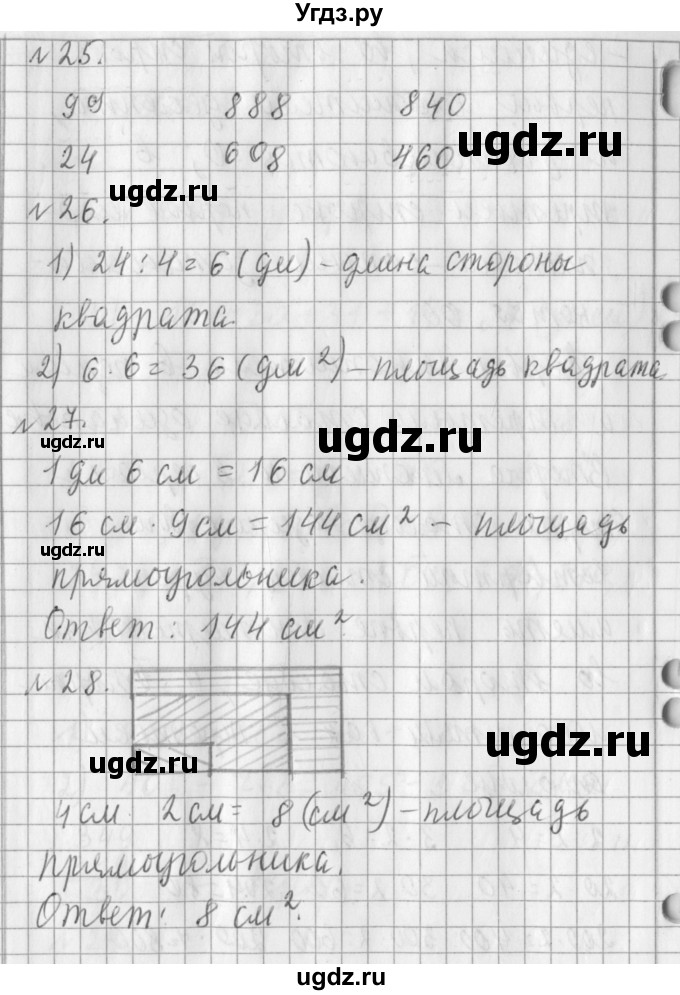 Угдз.ру
№25.
99 888 840
24 608 460
ugdz.ru
ugdz.ru
№26.
1) 24:4=6 (дм) - длина стороны
квадрата.
2) 6·6=36 (дм²) - площадь квадрата.
№27.
ugdz.ru
ugdz.ru
1 дм 6 см = 16 см
16 см · 9 см = 144 см² - площадь
ugdz.ru
прямоугольника.
Ответ: 144 см².
№28.
ugdz.ru
ugdz.ru
4 см · 2 см = 8 (см²) - площадь
прямоугольника.
Ответ: 8 см².
ugdz.ru